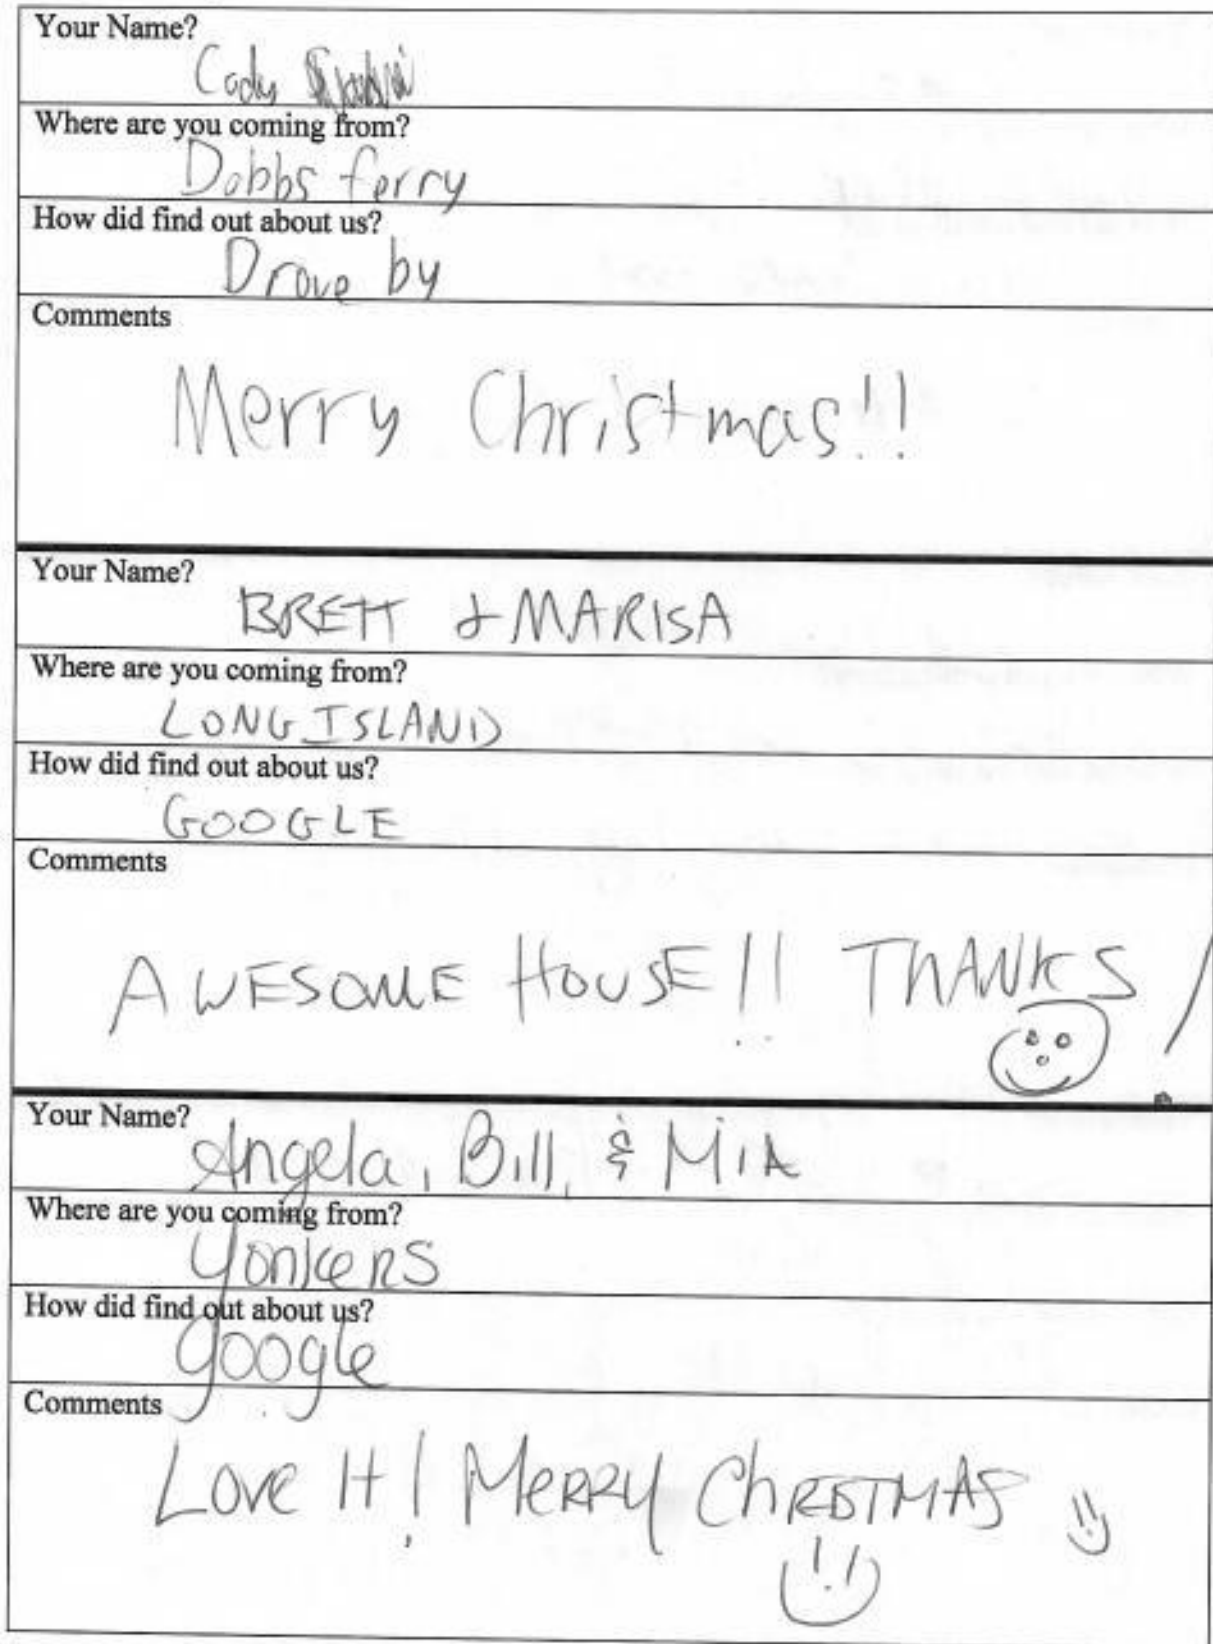 Your Name?
Cody
Where are you coming from?
Dobbs ferry
How did find out about us?
Drove by
Comments
Merry Christmas!!
Your Name?
BRETT & MARISA
Where are you coming from?
LONG ISLAND
How did find out about us?
GOOGLE
Comments
AWESOME HOUSE!! THANKS!
Your Name?
Angela, Bill, & MIA
Where are you coming from?
Yonkers
How did find out about us?
google
Comments
Love It! MERRY ChRISTMAS